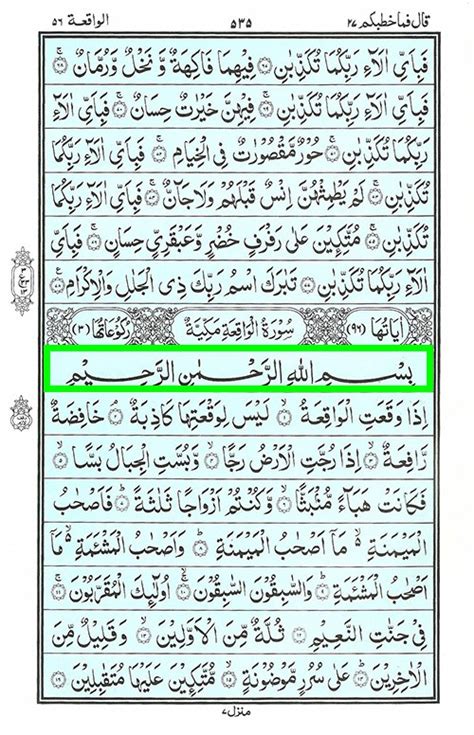 قَالَ فَمَا خَطْبُكُمْ ٢٧ ٥٣٥ الواقعة ٥٦
فَبِاَيِّ اٰلَآءِ رَبِّكُمَا تُكَذِّبٰنِ فِيْهِمَا فَاكِهَةٌ وَّ نَخْلٌ وَّرُمَّانٌ
فَبِاَيِّ اٰلَآءِ رَبِّكُمَا تُكَذِّبٰنِ فِيْهِنَّ خَيْرٰتٌ حِسَانٌ فَبِاَيِّ اٰلَآءِ
رَبِّكُمَا تُكَذِّبٰنِ حُوْرٌ مَّقْصُوْرٰتٌ فِي الْخِيَامِ فَبِاَيِّ اٰلَآءِ رَبِّكُمَا
تُكَذِّبٰنِ لَمْ يَطْمِثْهُنَّ اِنْسٌ قَبْلَهُمْ وَلَا جَآنٌّ فَبِاَيِّ اٰلَآءِ رَبِّكُمَا
تُكَذِّبٰنِ مُتَّكِـِٕيْنَ عَلٰى رَفْرَفٍ خُضْرٍ وَّعَبْقَرِيٍّ حِسَانٍ فَبِاَيِّ
اٰلَآءِ رَبِّكُمَا تُكَذِّبٰنِ تَبٰرَكَ اسْمُ رَبِّكَ ذِي الْجَلٰلِ وَالْاِكْرَامِ
اٰيَاتُهَا (٩٦) سُوْرَةُ الْوَاقِعَةِ مَكِّيَّةٌ رُكُوْعَاتُهَا (٣)
بِسْمِ اللّٰهِ الرَّحْمٰنِ الرَّحِيْمِ
اِذَا وَقَعَتِ الْوَاقِعَةُ لَيْسَ لِوَقْعَتِهَا كَاذِبَةٌ خَافِضَةٌ
رَّافِعَةٌ اِذَا رُجَّتِ الْاَرْضُ رَجًّا وَّبُسَّتِ الْجِبَالُ بَسًّا
فَكَانَتْ هَبَآءً مُّنْۢبَثًّا وَّكُنْتُمْ اَزْوَاجًا ثَلٰثَةً فَاَصْحٰبُ
الْمَيْمَنَةِ مَآ اَصْحٰبُ الْمَيْمَنَةِ وَاَصْحٰبُ الْمَشْـَٔمَةِ مَآ
اَصْحٰبُ الْمَشْـَٔمَةِ وَالسّٰبِقُوْنَ السّٰبِقُوْنَ اُولٰٓئِكَ الْمُقَرَّبُوْنَ
فِيْ جَنّٰتِ النَّعِيْمِ ثُلَّةٌ مِّنَ الْاَوَّلِيْنَ وَقَلِيْلٌ مِّنَ
الْاٰخِرِيْنَ عَلٰى سُرُرٍ مَّوْضُوْنَةٍ مُّتَّكِـِٕيْنَ عَلَيْهَا مُتَقٰبِلِيْنَ
منزل ٧